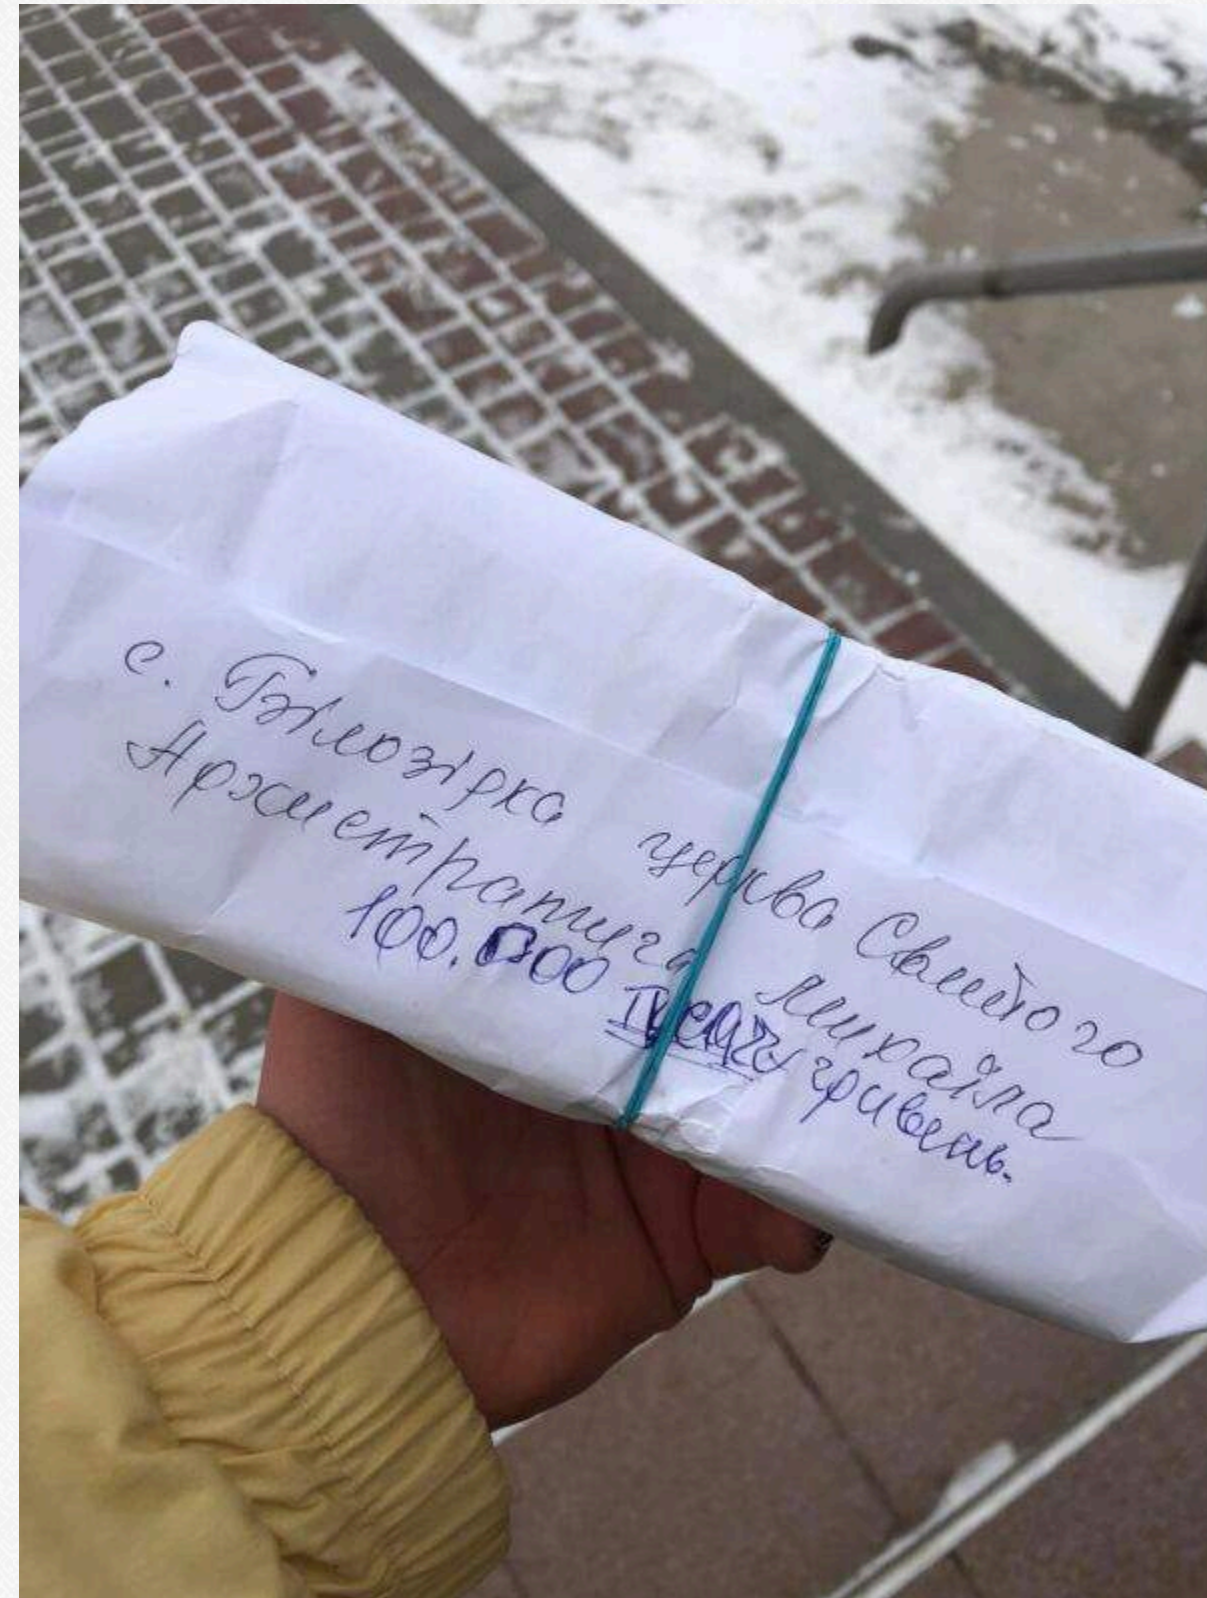 с. Білозірка церква Святого
Архистратига михаїла
100.000 тисяч гривень.